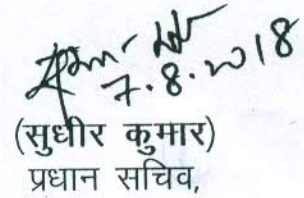 7.8.2018
(सुधीर कुमार)
प्रधान सचिव,